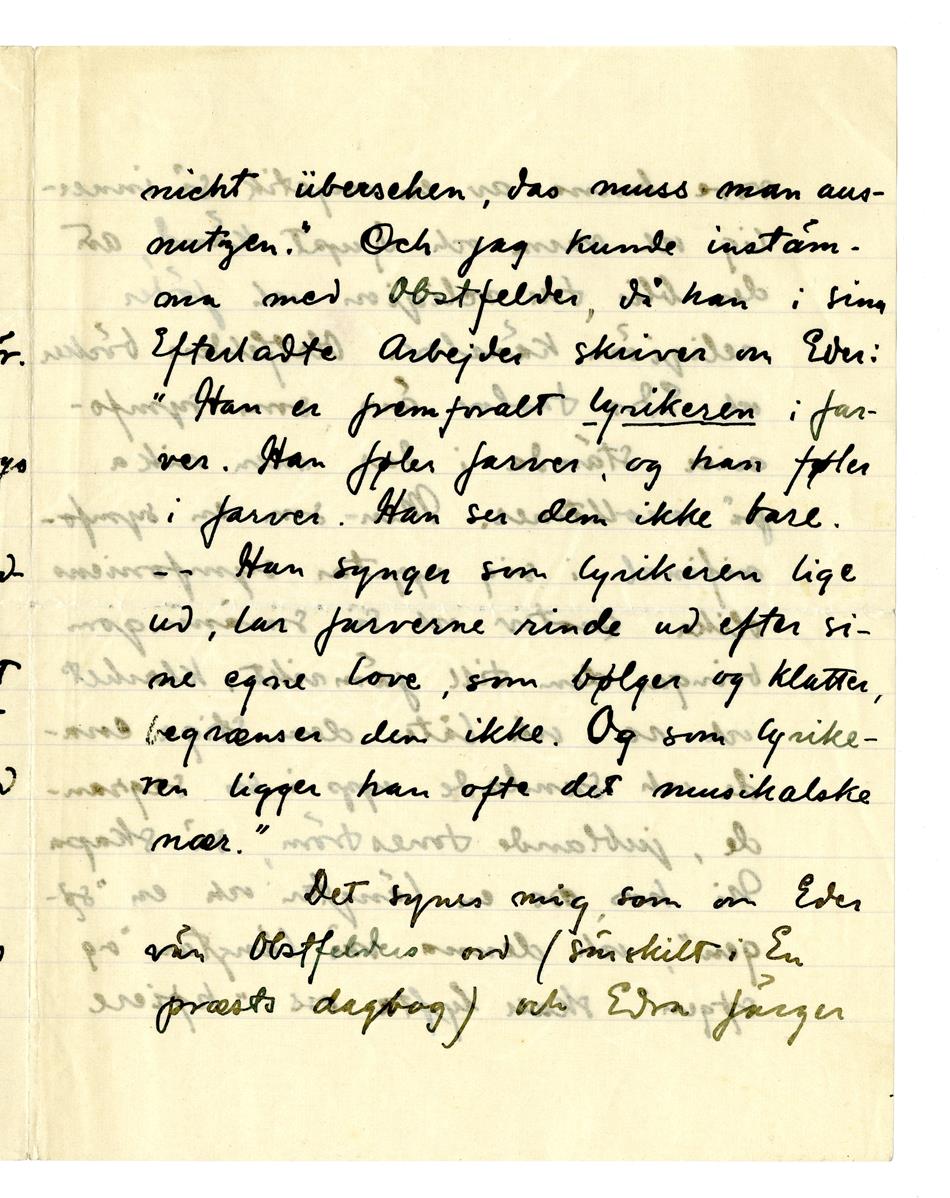 nicht übersehen, das muss man aus-
nutzen." Och jag kunde instäm-
ma med Obstfelder, då han i sina
Efterladte Arbejder skriver om Eder:
"Han er fremforalt lyrikeren i far-
ver. Han føler farver, og han føler
i farver. Han ser dem ikke bare.
-- Han synger som lyrikeren lige
ud, lar farverne rinde ud efter si-
ne egne love, som bølger og klatter,
begrænser dem ikke. Og som lyrike-
ren ligger han ofte det musikalske
nær."
Det synes mig, som om Eder
vän Obstfelders ord (särskilt i En
præsts dagbog) och Edra färger